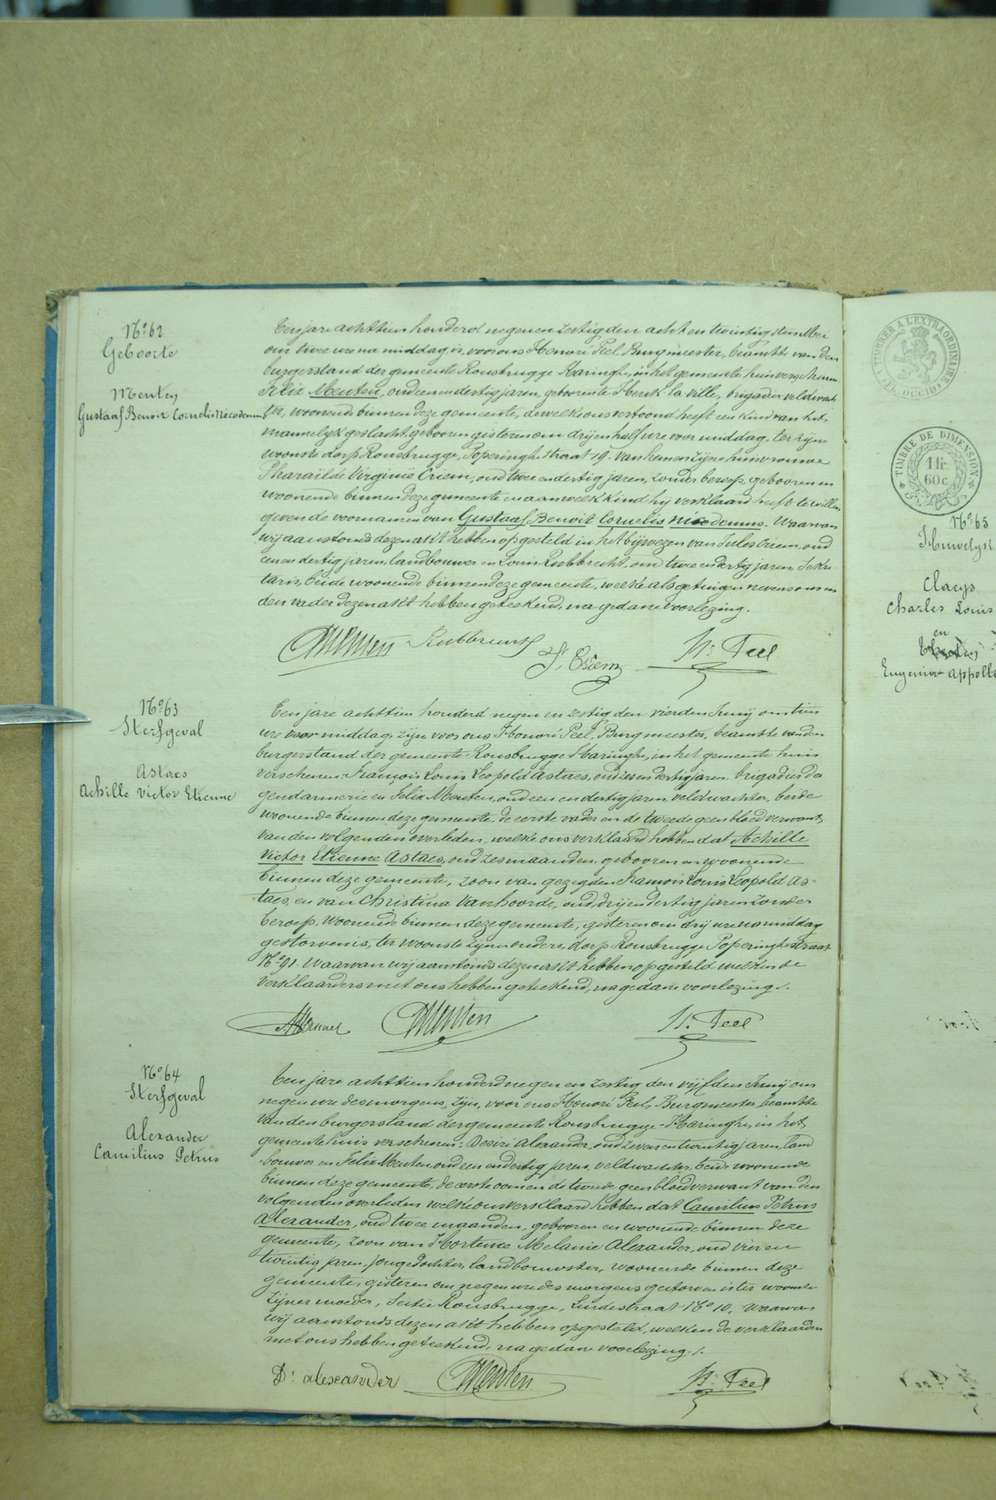 N° 62
Geboorte
Menten
Gustaaf Benoit Cornelis Nicodemus
Een jare achttien honderd negen en zestig den acht en twintigsten Mei
om twee ure na middag is voor ons Honoré Peel, Burgmeester, beambte van den
burgerstand der gemeente Rousbrugge-Haringhe, in het gemeente huis verschenen
Felix Menten, oud een en dertig jaren, geboren te Herck-la-ville, brigadier veldwach-
ter, woonende binnen deze gemeente, dewelke ons vertoond heeft een kind van het
mannelijk geslacht, geboren gisteren om drij en half ure voor middag, ter zijne
woonste dorp Rousbrugge, Poperinghestraat 19, van hem en zijne huisvrouwe
Sharailde Virginie Criem, oud twee en dertig jaren, zonder beroep, geboren en
woonende binnen deze gemeente en aan welk kind hij verklaard heeft te willen
geven de voornamen van Gustaaf Benoit Cornelis Nicodemus. Waarvan
wij aanstonds dezen akt hebben opgesteld in het bijwezen van Jules Criem, oud
een en dertig jaren, landbouwer en Louis Rubbrecht, oud twee en dertig jaren, Sekre-
taris, beide woonende binnen deze gemeente, welke als getuigen nevens ons en
den vader dezen akt hebben geteekend, na gedane voorlezing.
Menten Rubbrecht
J. Criem H. Peel
N° 63
Sterfgeval
Astaes
Achille Victor Etienne
Een jare achttien honderd negen en zestig den vierden Junij om tien
ure voor middag, zijn voor ons Honoré Peel, Burgmeester, beambte van den
burgerstand der gemeente Rousbrugge-Haringhe, in het gemeente huis
verschenen François Louis Leopold Astaes, oud zes en dertig jaren, brigadier der
gendarmerie en Felix Menten, oud een en dertig jaren, veldwachter, beide
woonende binnen deze gemeente, de eerste vader en de tweede geen bloedverwant
van den volgenden overleden, welke ons verklaard hebben dat Achille
Victor Etienne Astaes, oud zes maanden, geboren en woonende
binnen deze gemeente, zoon van gezegden François Louis Leopold As-
taes, en van Christina Vanhoorde, oud drij en dertig jaren, zonder
beroep, woonende binnen deze gemeente, gisteren om drij ure na middag
gestorven is, ter woonste zijner ouders dorp Rousbrugge Poperinghestraat
N° 91. Waarvan wij aanstonds dezen akt hebben opgesteld welken de
verklaarders met ons hebben geteekend, na gedane voorlezing.
Menten H. Peel
N° 64
Sterfgeval
Alexander
Camilius Petrus
Een jare achttien honderd negen en zestig den vijfden Junij om
negen ure des morgens, zijn, voor ons Honoré Peel, Burgmeester, beambte
van den burgerstand der gemeente Rousbrugge-Haringhe, in het
gemeente huis verschenen: Desiré Alexander, oud zeven en twintig jaren, land-
bouwer en Felix Menten, oud een en dertig jaren, veldwachter, beide woonende
binnen deze gemeente, de eerste oomen de tweede geen bloedverwant van den
volgenden overleden welke ons verklaard hebben dat Camilius Petrus
Alexander, oud twee maanden, geboren en woonende binnen deze
gemeente, zoon van Hortence Melanie Alexander, oud vier en
twintig jaren, jongedochter, landbouwster, woonende binnen deze
gemeente, gisteren om negen ure des morgens gestorven is ter woonste
zijner moeder, Sectie Rousbrugge, Lindestraat N° 10. Waarvan
wij aanstonds dezen akt hebben opgesteld, welken de verklaarders
met ons hebben geteekend, na gedane voorlezing.
Dé Alexander Menten H. Peel
TIMBRE DE DIMENSION
1 fr.
60 c.
N° 65
Huwelijk
Claeys
Charles Louis
en
Eugenie Appol